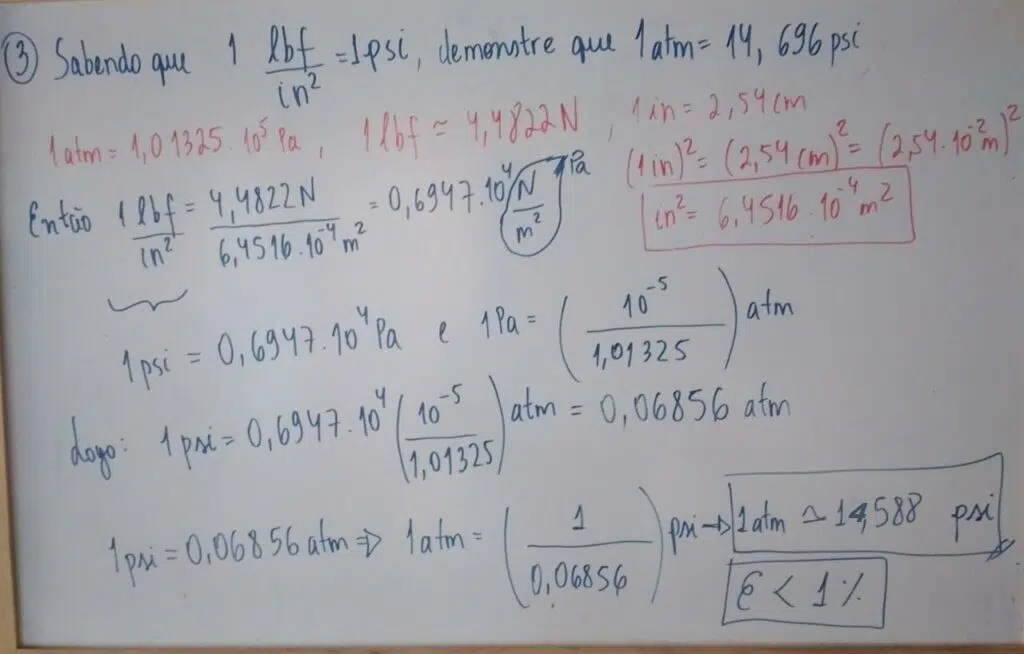 ③ Sabendo que 1 lbf/in² = 1psi, demonstre que 1 atm = 14,696 psi
1 atm = 1,01325·10⁵ Pa, 1 lbf ≃ 4,4822N, 1 in = 2,54 cm
(1in)² = (2,54 cm)² = (2,54·10⁻² m)²
in² = 6,4516·10⁻⁴ m²
Então 1 lbf/in² = 4,4822N/6,4516·10⁻⁴ m² = 0,6947·10⁴ N/m² → Pa
1 psi = 0,6947·10⁴ Pa e 1Pa = (10⁻⁵/1,01325) atm
Logo: 1 psi = 0,6947·10⁴ (10⁻⁵/1,01325) atm = 0,06856 atm
1 psi = 0,06856 atm ⇒ 1 atm = (1/0,06856) psi → 1 atm ≃ 14,588 psi
ε < 1 %